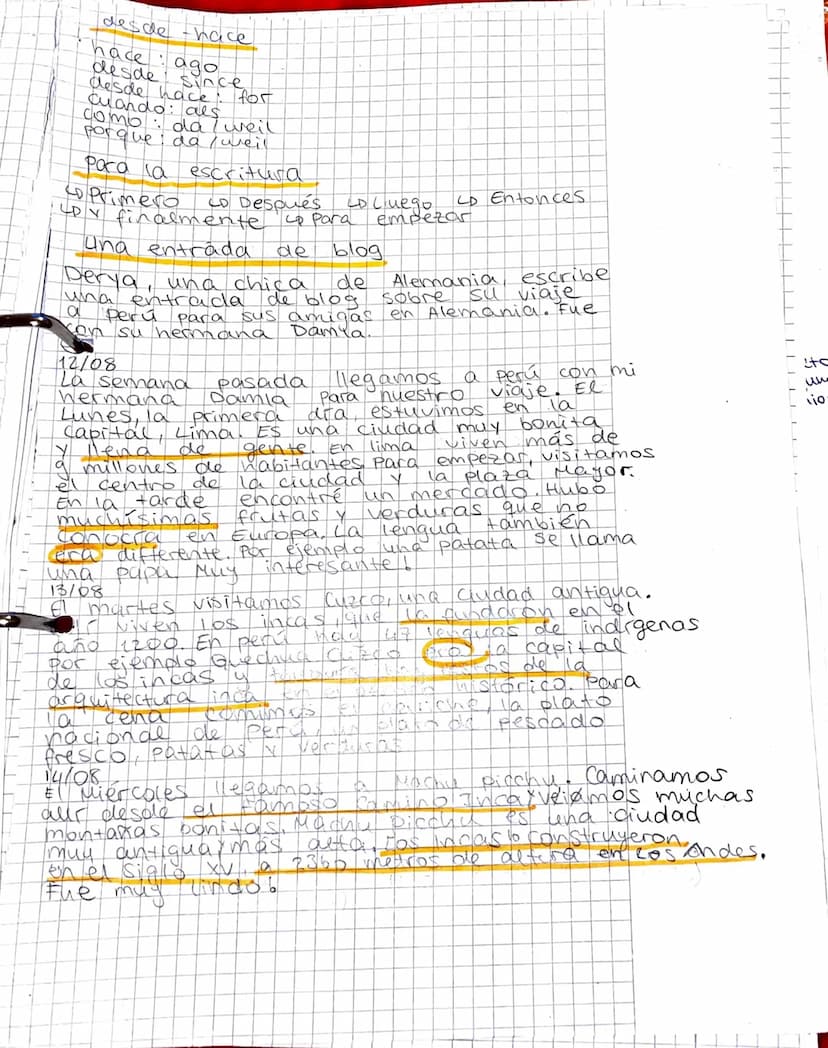 desde - hace
hace : ago
desde : since
desde hace : for
cuando : als
como : da / weil
porque : da / weil
para la escritura
↳ Primero ↳ Después ↳ Luego ↳ Entonces
↳ y finalmente ↳ para empezar
una entrada de blog
Derya, una chica de Alemania, escribe
una entrada de blog sobre su viaje
a perú para sus amigas en Alemania. Fue
con su hermana Damla.
12/08
La semana pasada llegamos a perú con mi
hermana Damla para nuestro viaje. El
Lunes, la primera día, estuvimos en la
capital, Lima. Es una ciudad muy bonita
y llena de gente. En lima viven más de
9 millones de habitantes para empezar, visitamos
el centro de la ciudad y la plaza Mayor.
En la tarde encontré un mercado. Hubo
muchísimas frutas y verduras que no
conocía en Europa. La lengua también
era differente. Por ejemplo una patata se llama
una papa. Muy interesante!
13/08
El martes visitamos Cuzco, una ciudad antigua.
viven los incas, que la fundaron en el
año 1200. En perú hay 47 lenguas de indígenas
por ejemplo Quechua. Cuzco era la capital
de los incas y de la
arquitectura inca en el histórico. Para
la cena comimos el ceviche, la plato
nacional de Perú, un plato de pescado
fresco, patatas y verduras
14/08
El Miércoles llegamos a Machu picchu. Caminamos
allí desde el famoso Camino Inca y veíamos muchas
montañas bonitas. Machu picchu es una ciudad
muy antigua y más alta. Los incas lo construyeron
en el siglo XV, a 2360 metros de altura en los Andes.
Fue muy lindo!